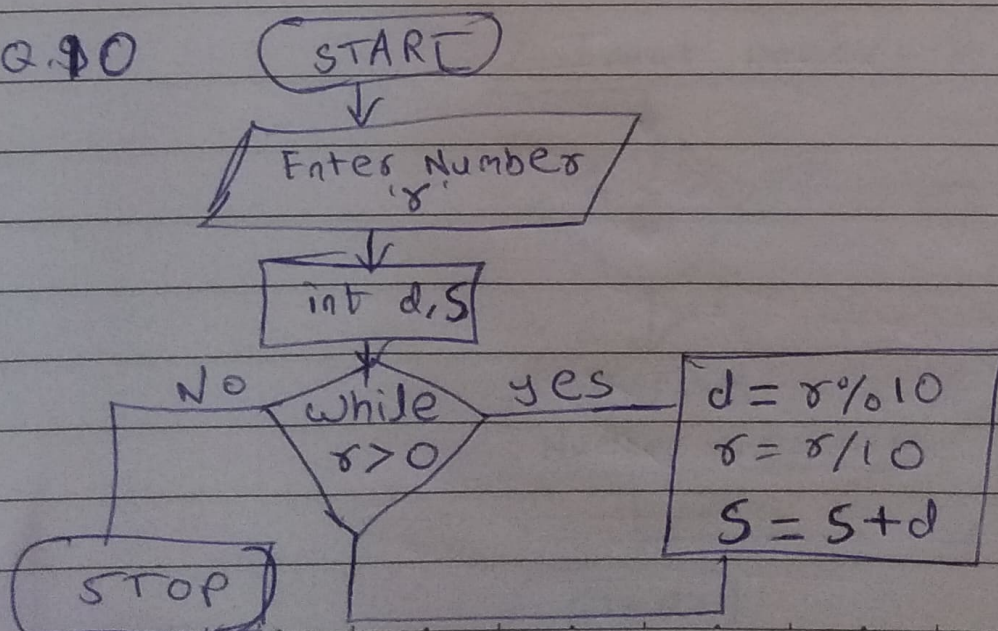 Q.10
START
Enter Number
'r'
int d, S
No
while
r>0
yes
d = r%10
r = r/10
S = S+d
STOP